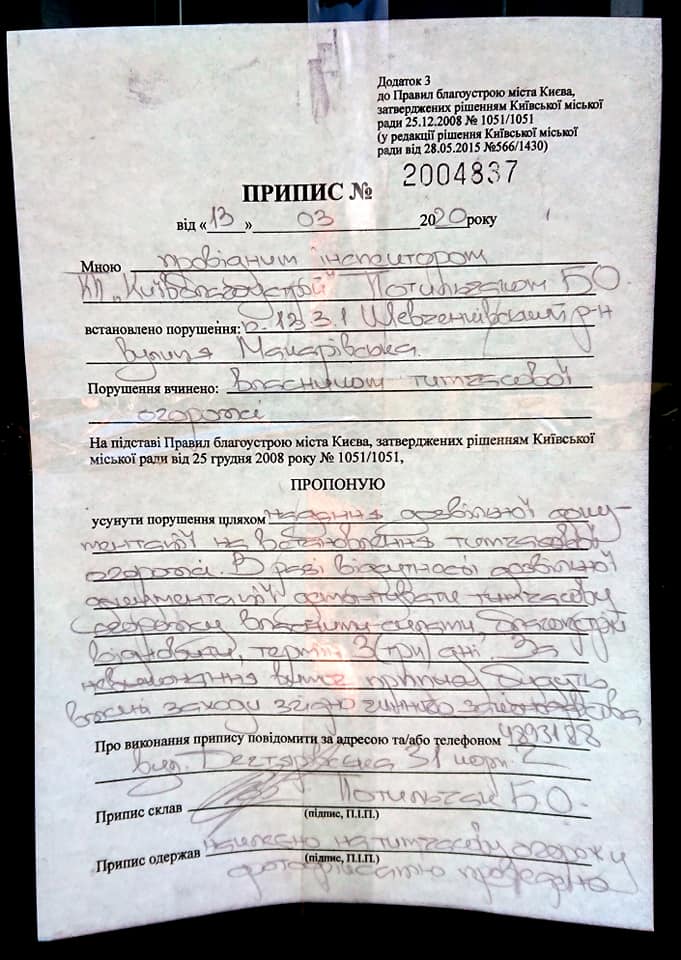 Додаток 3
до Правил благоустрою міста Києва,
затверджених рішенням Київської міської
ради 25.12.2008 № 1051/1051
(у редакції рішення Київської міської
ради від 28.05.2015 №566/1430)
2004837
ПРИПИС №
від «13» 03 2020 року
Мною провідним інспектором
КП "Київблагоустрій" Потильчаком Б.О.
встановлено порушення: п. 13.3.1 Шевченківський р-н
вулиця Макарівська.
Порушення вчинено: власником тимчасової
огорожі
На підставі Правил благоустрою міста Києва, затверджених рішенням Київської
міської ради від 25 грудня 2008 року № 1051/1051,
ПРОПОНУЮ
усунути порушення шляхом надання дозвільної доку-
ментації на встановлення тимчасової
огорожі. В разі відсутності дозвільної
документації демонтувати тимчасову
огорожу власними силами, благоустрій
відновити, термін 3 (три) дні. За
невиконання вимог припису будуть
вжиті заходи згідно чинного законодавства
Про виконання припису повідомити за адресою та/або телефоном
вул. Дегтярівська 31 корп. 2
Припис склав Потильчак Б.О.
(підпис, П.І.П.)
Припис одержав наклеєно на тимчасову огорожу
(підпис, П.І.П.)
фотофіксацію проведено